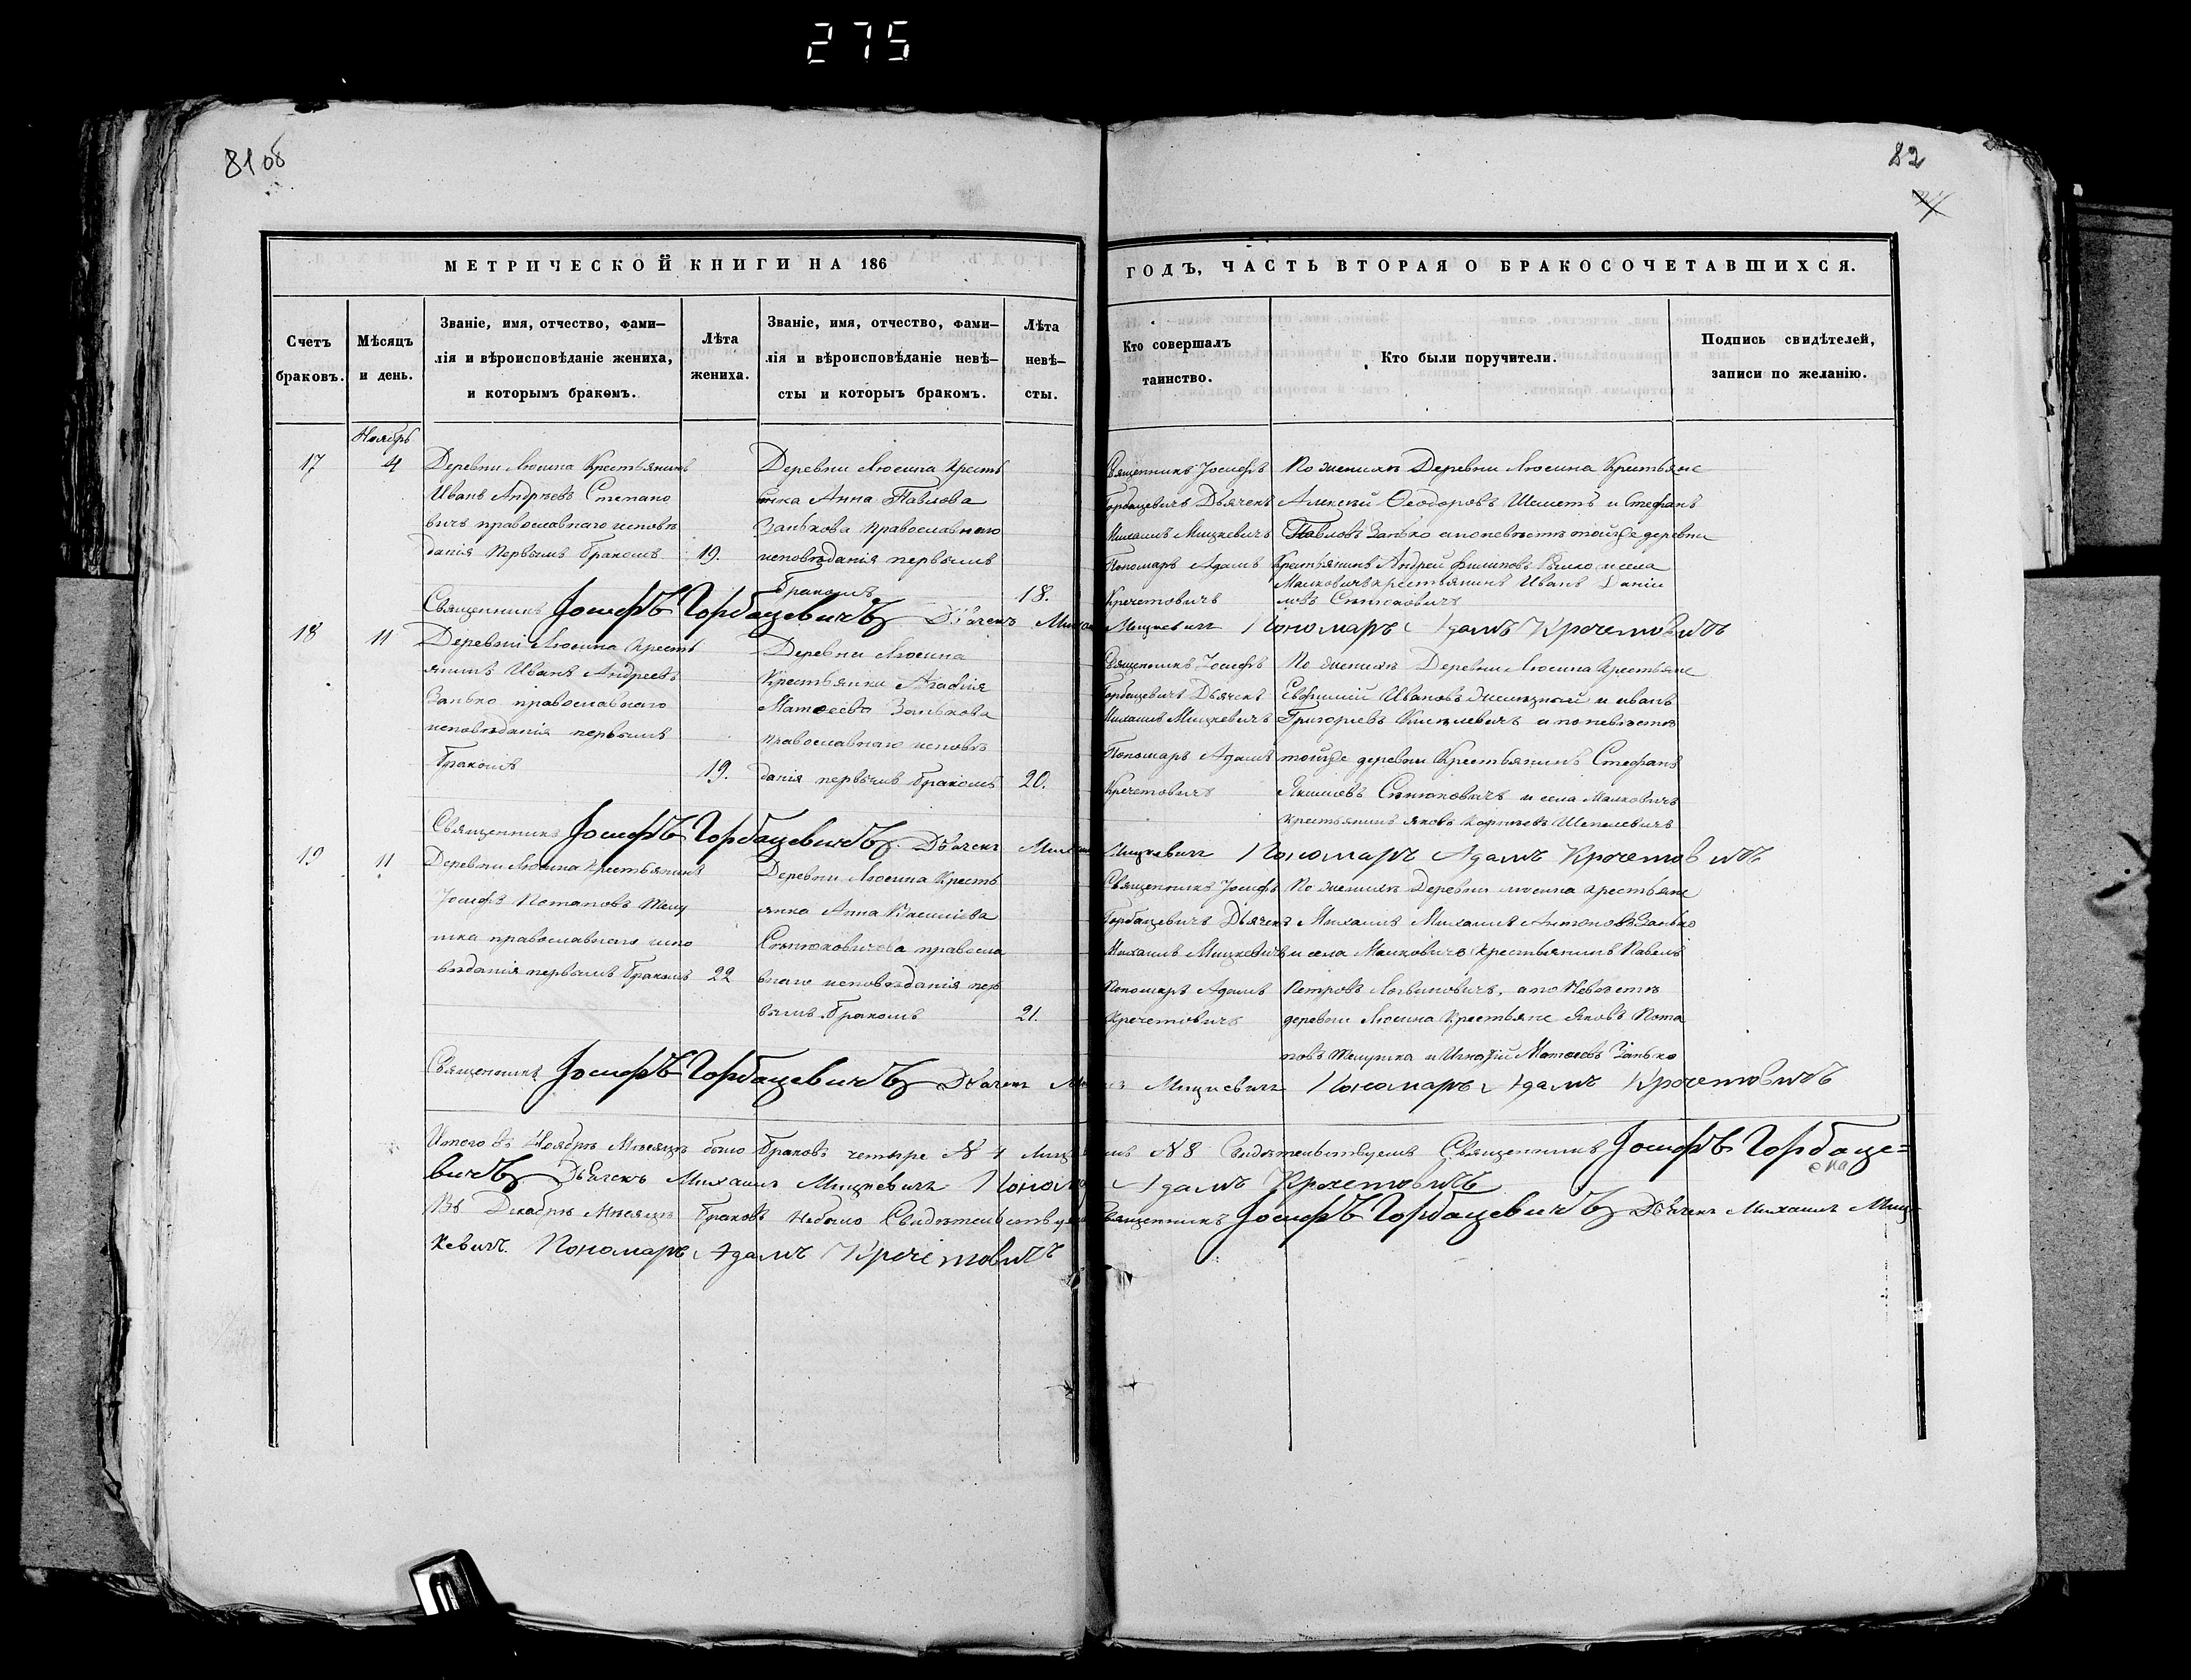 275
81 об
82
МЕТРИЧЕСКОЙ КНИГИ НА 186
ГОДЪ, ЧАСТЬ ВТОРАЯ О БРАКОСОЧЕТАВШИХСЯ.
Счетъ
браковъ.
Мѣсяцъ
и день.
Званіе, имя, отчество, фами-
лія и вѣроисповѣданіе жениха,
и которымъ бракомъ.
Лѣта
жениха.
Званіе, имя, отчество, фами-
лія и вѣроисповѣданіе невѣ-
сты и которыъ браком.
Лѣта
невѣ-
сты.
Кто совершалъ
таинство.
Кто были поручители.
Подпись свидѣтелей,
записи по желанію.
Ноябрь
17
4
Деревни Люсина Крестьянинъ
Иванъ Андреевъ Степано
вичъ православнаго исповѣ
данія Первымъ бракомъ
19.
Деревни Люсина Кресть
янка Анна Павлова
Занькова Православнаго
исповѣданія первымъ
бракомъ
18.
Священникъ Іосифъ
Горбацевичъ Дьячекъ
Михаилъ Мицкевичъ
Пономарь Адамъ
Кречетовичъ
По женихѣ Деревни Люсина Крестьяне
Алексѣй Ѳеодоровъ Шеметъ и Стефанъ
Павловъ Занько а по невѣстѣ тойже деревни
Крестьянинъ Андрей Филиповъ и села
Малковичъ крестьянинъ Иванъ Даніи
ловъ Сѣнюковичъ
Священникъ Іосифъ Горбацевичъ Дьячекъ Михаилъ Мицкевичъ Пономарь Адамъ Кречетовичъ
18
11
Деревни Люсина Кресть
янинъ Иванъ Андреевъ
Занько православнаго
исповѣданія первымъ
бракомъ
19.
Деревни Люсина
Крестьянка Агафія
Матѳеева Занькова
православнаго исповѣ
данія первымъ бракомъ
20.
Священникъ Іосифъ
Горбацевичъ Дьячекъ
Михаилъ Мицкевичъ
Пономарь Адамъ
Кречетовичъ
По женихѣ Деревни Люсина Крестьяне
Ивановъ и иванъ
Григорьевъ Киселевичъ а по невѣстѣ
тойже деревни Крестьянинъ Стефанъ
Якимовъ Сѣнюковичъ и села Малковичъ
крестьянинъ Яковъ Корнѣевъ Шепелевичъ
Священникъ Іосифъ Горбацевичъ Дьячекъ Мицкевичъ Пономарь Адамъ Кречетовичъ
19
11
Деревни Люсина Крестьянинъ
Іосифъ Потаповъ Телу
шка православнаго испо
вѣданія первымъ бракомъ
22
Деревни Люсина Кресть
янка Анна Василіева
Сѣнюковичова правосла
внаго исповѣданія пер
вымъ бракомъ
21.
Священникъ Іосифъ
Горбацевичъ Дьячекъ
Михаилъ Мицкевичъ
Пономарь Адамъ
Кречетовичъ
По женихѣ Деревни люсина крестьяне
Михаилъ Михаилъ Антоновъ Занько
и села Малковичъ Крестьянинъ Павелъ
Петровъ Логвиновичъ, а по Невѣстѣ
деревни Люсина Крестьяне Яковъ Пота
повъ Телушка и Игнатій Матѳеевъ Занько
Священникъ Іосифъ Горбацевичъ Дьячекъ Мицкевичъ Пономарь Адамъ Кречетовичъ
Итого въ Ноябрѣ Мѣсяцѣ было браковъ четыре № 4 № 8 Свидѣтельствуемъ Священникъ Іосифъ Горбаце=
вичъ Дьячекъ Михаилъ Мицкевичъ Пономарь Адамъ Кречетовичъ
Въ Декабрѣ Мѣсяцѣ браковъ Небыло Свидѣтельствуемъ Священникъ Іосифъ Горбацевичъ Дьячекъ Михаилъ Миц-
кевичъ. Пономарь Адамъ Кречетовичъ